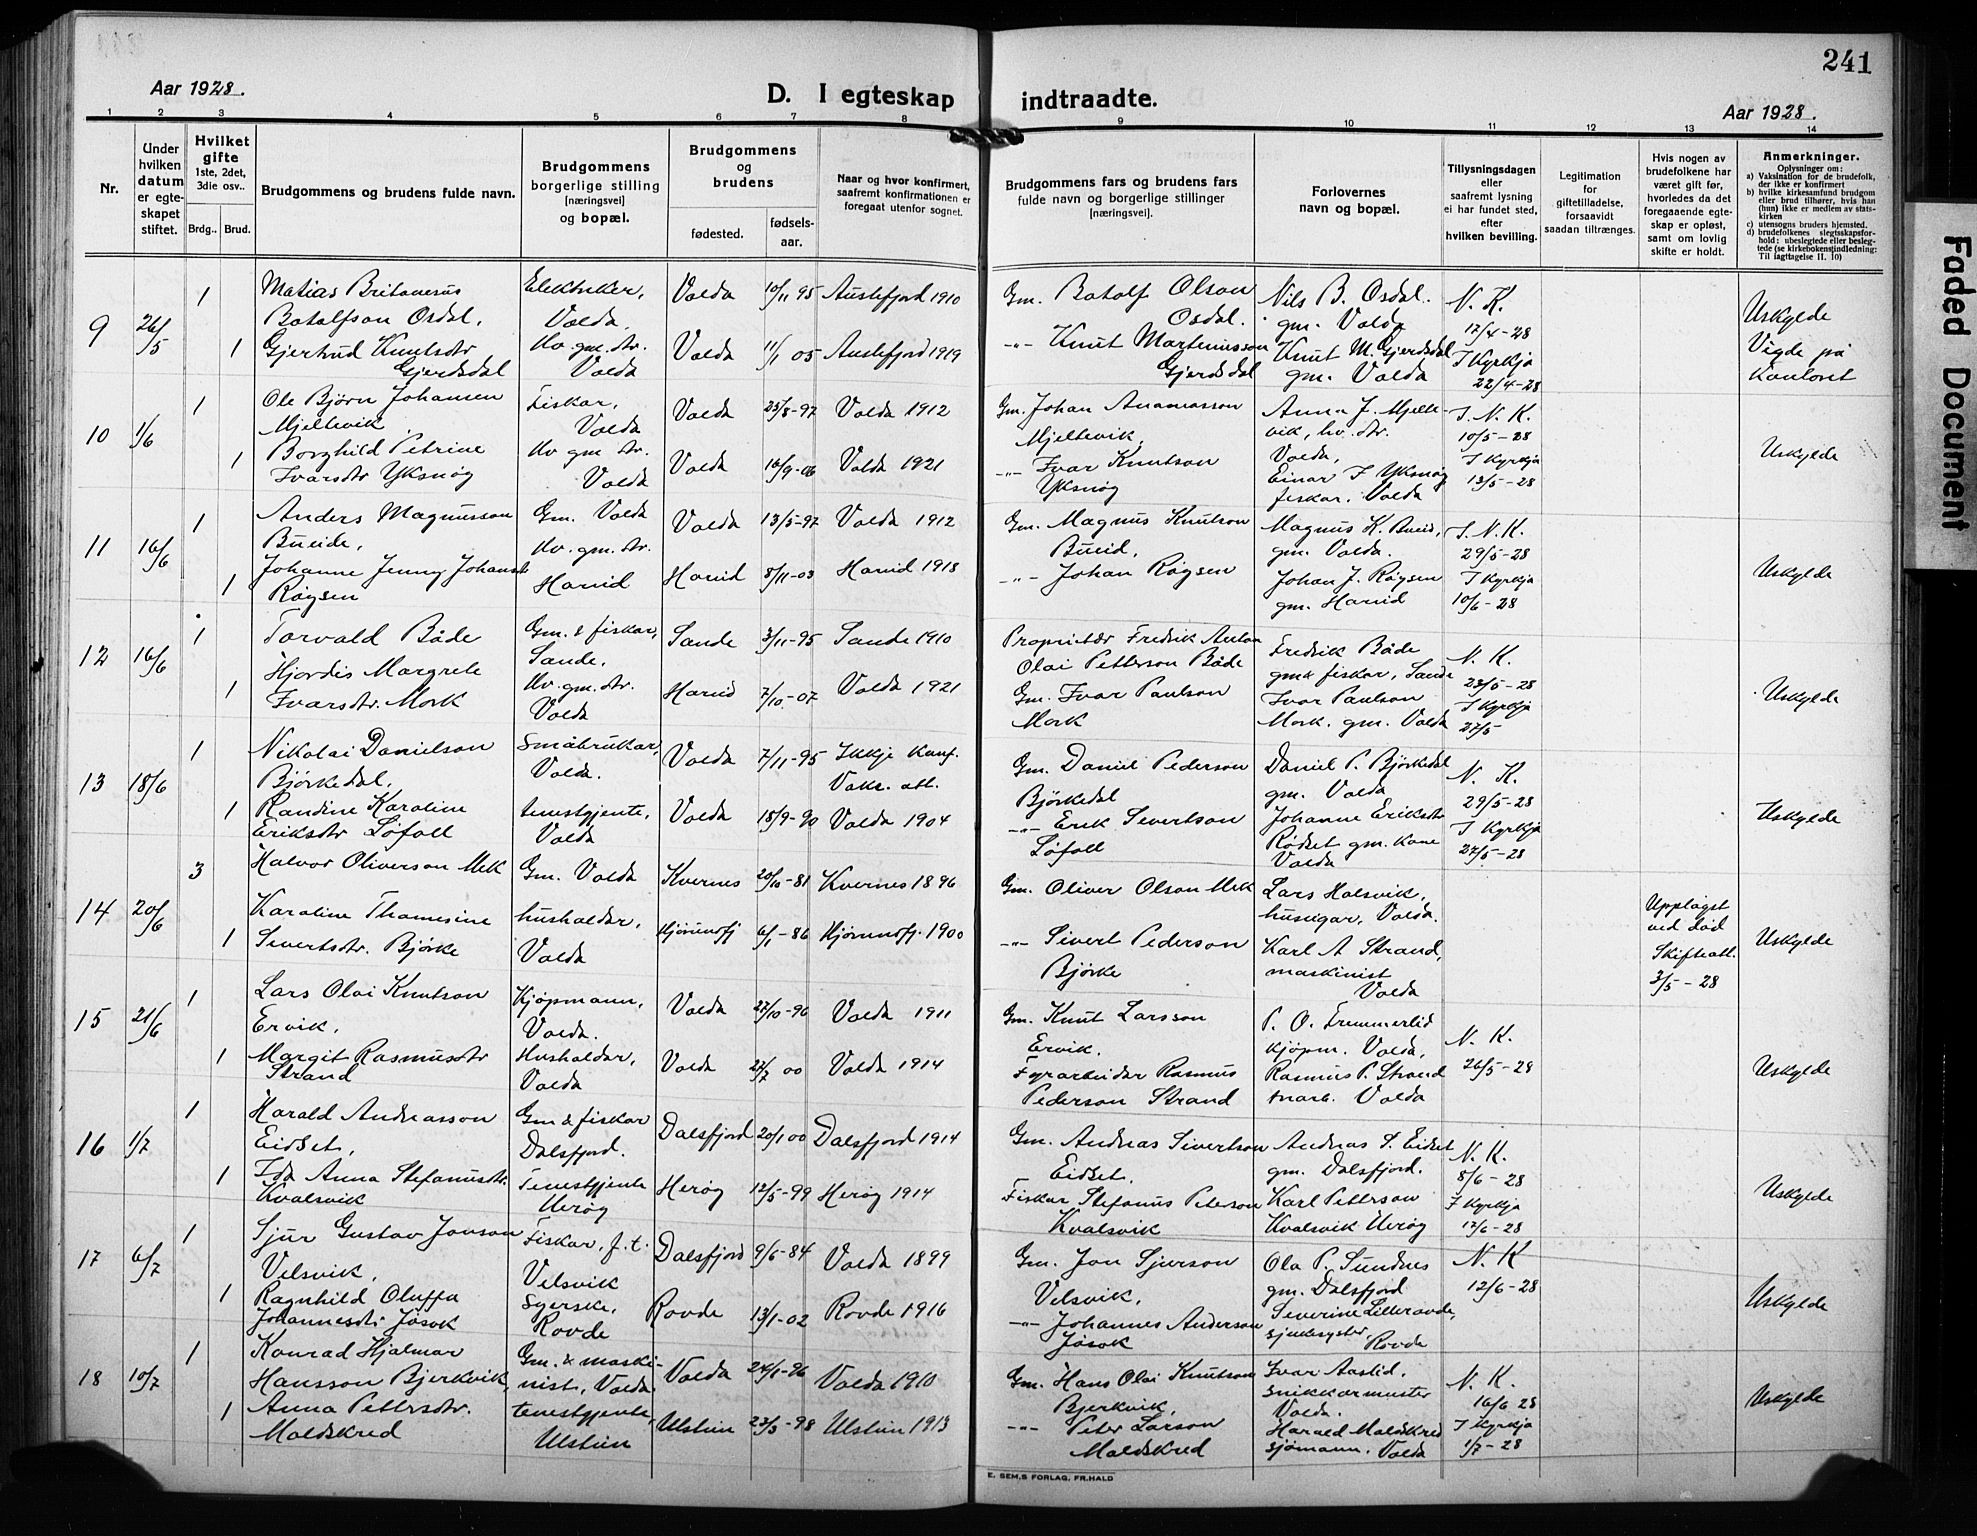 241
Aar 1928.
D. I egteskap indtraadte.
Aar 1928.
1 2 3 4 5 6 7 8 9 10 11 12 13 14
Nr.
Under hvilken datum er egteskapet stiftet.
Hvilket gifte
1ste, 2det, 3die osv..
Brdg.. Brud.
Brudgommens og brudens fulde navn.
Brudgommens borgerlige stilling [næringsvei] og bopæl.
Brudgommens og brudens
fødested.
fødsels-aar.
Naar og hvor konfirmert, saafremt konfirmationen er foregaat utenfor sognet.
Brudgommens fars og brudens fars fulde navn og borgerlige stillinger [næringsvei].
Forlovernes navn og bopæl.
Tillysningsdagen eller saafremt lysning ei har fundet sted, efter hvilken bevilling.
Legitimation for giftetilladelse, forsaavidt saadan tiltrænges.
Hvis nogen av brudefolkene har været gift før, hvorledes da det foregaaende egteskap er opløst, samt om lovlig skifte er holdt.
Anmerkninger.
Oplysninger om:
a) Vaksination for de brudefolk, der ikke er konfirmert
b) hvilke kirkesamfund brudgom eller brud tilhører, hvis han (hun) ikke er medlem av statskirken
c) utensogns bruders hjemsted.
d) brudefolkenes slegtsskapsforhold: ubeslegtede eller beslegtede (se kirkebokens indledning: Til Iagttagelse II. 10)
9 26/5
1 Matias Britanerus Botolfson Osdal, Elektriker, Volda. Volda 10/11 95 Austefjord 1910
Gm. Botolf Olson Osdal. Nils B. Osdal. gm. Volda N. K. 17/4-28
1 Gjertrud Knutsdtr Gjerdsdal Hv. gm. dtr. Volda Volda 11/1 05 Austefjord 1919
-"- Knut Martinusson Gjerdsdal Knut M. Gjerdsdal gm. Volda I Kyrkja 22/4-28
Uskylde Vigde på Kontoret
10 1/6
1 Ole Bjørn Johansen Mjeltevik Fiskar, Volda Volda 25/8-97 Volda 1912
Gm. Johan Ananiasson Mjeltevik. Anna J. Mjeltevik, hv. dtr. Volda, I. N. K. 10/5-28
1 Borghild Petrine Ivarsdtr Yksnøy Hv gm dtr. Volda Volda 16/9-06 Volda 1921
-"- Ivar Knutson Yksnøy Einar I Yksnøy fiskar. Volda I Kyrkja 13/5-28
Uskylde
11 16/6
1 Anders Magnusson Bueide, Gm. Volda Volda 13/5-97 Volda 1912
Gm. Magnus Knutson Bueid, Magnus K. Bueid, gm. Volda. I. N. K. 29/5-28
1 Johanne Jenny Johansd Røysen Hv. gm. dtr. Hareid Hareid 8/11-03 Hareid 1918
-"- Johan Røysen Johan J. Røysen gm. Hareid I Kyrkja 10/6-28
Uskylde
12 16/6
1 Torvald Både Gm. & fiskar, Sande. Sande 3/11-95 Sande 1910
Proprietær Fredrik Anton Olai Petterson Både Fredrik Både gm& fiskar, Sande N. K. 23/5-28
1 Hjørdis Margrete Ivarsdtr. Mork Hv. gm. dtr. Volda Hareid 7/10-07 Volda 1921
Gm. Ivar Paulson Mork Ivar Paulson Mork. gm. Volda I Kyrkja 27/5
Uskylde
13 18/6
1 Nikolai Danielson Bjørkedal, Småbrukar, Volda. Volda 7/11-95 Ikkje Konf. Vaks. att.
Gm. Daniel Pederson Bjørkedal Daniel P. Bjørkedal gm. Volda N. K. 29/5-28
1 Randine Karoline Eriksdtr Løfoll tenestgjente, Volda Volda 18/9-90 Volda 1904
-"- Erik Sivertson Løfoll Johanne Eriksdtr Rødset gm. kone Volda I Kyrkja 27/5-28
Uskylde
14 20/6
3 Halvor Oliverson Mek Gm. Volda Kvernes 20/10-81 Kvernes 1896
Gm. Oliver Olson Mek Lars Halsvik, huseigar, Volda.
1 Karoline Thomesine Sivertsdtr. Bjørke husholdar, Volda Hjørundfj 6/1-86 Hjørundfj. 1900
-"- Sivert Pederson Bjørke Karl A Strand, maskinist Volda
Uppløyst ved død Skifteatt. 3/5-28
Uskylde
15 21/6
1 Lars Olai Knutson Ervik, Kjøpmann, Volda. Volda 27/10-96 Volda 1911
Gm. Knut Larsson Ervik. P. O. Fremmerlid kjøpm. Volda, N. K. 26/5-28
1 Margit Rasmusdtr Strand Husholdar, Volda Volda 27/7 00 Volda 1914
Fyrarbeidar Rasmus Pederson Strand Rasmus P. Strand Volda
Uskylde
16 1/7
1 Harald Andreasson Eidset, Gm & fiskar Dalsfjord. Dalsfjord 20/1 00 Dalsfjord 1914
Gm. Andreas Sivertson Eidset. Andreas S. Eidset gm. Dalsfjord. N. K. 8/6-28
1 Ida Anna Stefanusdtr. Kvalsvik Tenestgjente Herøy Herøy 12/5-99 Herøy 1914
Fiskar Stefanus Peterson Kvalsvik Karl Petterson Kvalsvik Herøy I Kyrkja 17/6-28
Uskylde
17 6/7
1 Sjur Gustav Jonson Velsvik, Fiskar, f. t. Velsvik Dalsfjord 9/6-84 Volda 1899
Gm. Jon Sjurson Velsvik, Ola P. Sundnes gm. Dalsfjord N. K 12/6-28
1 Ragnhild Oluffa Johannesdtr Jøsok Syerske, Rovde Rovde 13/1-02 Rovde 1916
-"- Johannes Anderson Jøsok Severine Lillerovde, sjukesyster, Rovde
Uskylde
18 10/7
1 Konrad Hjalmar Hansson Bjerkvik, Gm. & maskinist, Volda Volda 24/1-96 Volda 1910
Gm. Hans Olai Knutson Bjerkvik, Ivar Aastid, snikkarmeister Volda. N. K. 16/6 28
1 Anna Pettersdtr. Moldskred tenestgjente, Ulstein Ulstein 23/3-98 Ulstein 1913
-"- Peter Larson Moldskred Harald Moldskred sjømann. Volda I Kyrkja 1/7-28
Uskylde
E. SEM,S FORLAG, FR.HALD
Faded Document